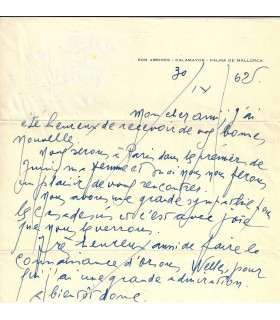 SON ABRINES - CALAMAYOR - PALMA DE MALLORCA
30/IX/625.
Mon cher ami, j'ai
été heureux de recevoir de vos bonnes
nouvelles.
Nous serons à Paris dans le premiers de
Juin, ma femme et moi nous nous ferons
un plaisir de vous rencontrer.
Nous avons une grande sympathie pour
les Casadesus et c'est avec joie
que nous le verrons.
Très heureux aussi de faire la
connaissance d'Orsons Welles pour
qui j'ai une grande admiration.
A bientôt donc.